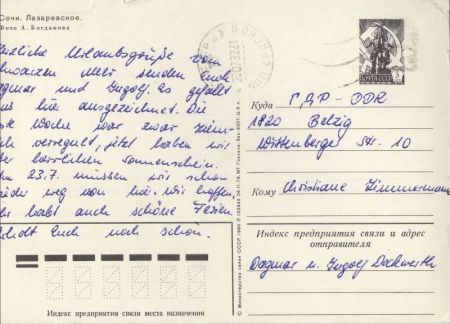 Сочи. Лазаревское.
Фото А. Богданова
Herzliche Urlaubsgrüße vom
Schwarzen Meer senden Euch
Dagmar und Ingolf. Es gefällt
uns hier ausgezeichnet. Die
erste Woche war zwar ziem-
lich verregnet, jetzt haben wir
aber herrlichen Sonnenschein.
Am 23.7. müssen wir schon
wieder weg von hier. Wir hoffen,
Ihr habt auch schöne Ferien.
Erholt Euch noch schön.
Индекс предприятия связи места назначения
Куда ГДР - DDR
1820 Belzig
Wittenberger Str. 10
Кому Christiane Zimmermann
Индекс предприятия связи и адрес
отправителя
Dagmar u. Ingolf Dockwerth